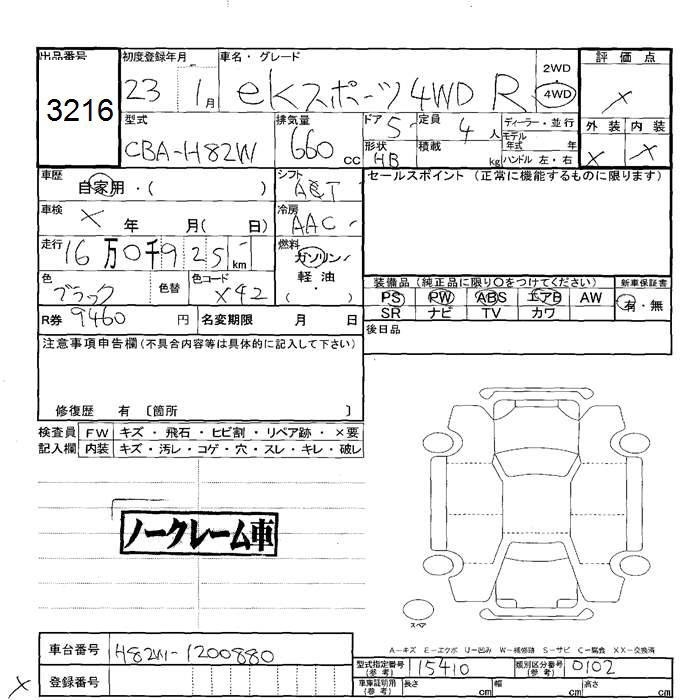 出品番号
3216
初度登録年月
23 1月
車名・グレード
eKスポーツ4WD R
2WD
4WD
評価点
×
外装 内装
× ×
型式
CBA-H82W
排気量
660 cc
ドア 5
形状 HB
定員 4 人
積載 kg
ディーラー・並行
モデル年式 年
ハンドル 左・右
車歴
自家用・( )
シフト
セールスポイント (正常に機能するものに限ります)
車検
× 年 月( 日)
冷房
AAC
走行
16万0千925 km
燃料
ガソリン・軽油
( )
色
ブラック
色替
色コード
X42
装備品(純正品に限り○をつけてください)
新車保証書
PS PW ABS エアB AW
有・無
SR ナビ TV カワ
R券 9460 円
名変期限 月 日
後日品
注意事項申告欄(不具合内容等は具体的に記入して下さい)
修復歴 有 〔箇所 〕
検査員記入欄
FW キズ・飛石・ヒビ割・リペア跡・×要
内装 キズ・汚レ・コゲ・穴・スレ・キレ・破レ
ノークレーム車
スペア
A－キズ E－エクボ U－凹み W－補修跡 S－サビ C－腐食 XX－交換済
車台番号
H82W-1200880
型式指定番号(参考)
115410
類別区分番号(参考)
0102
×
登録番号
車庫証明用(参考)
長さ cm 幅 cm 高さ cm